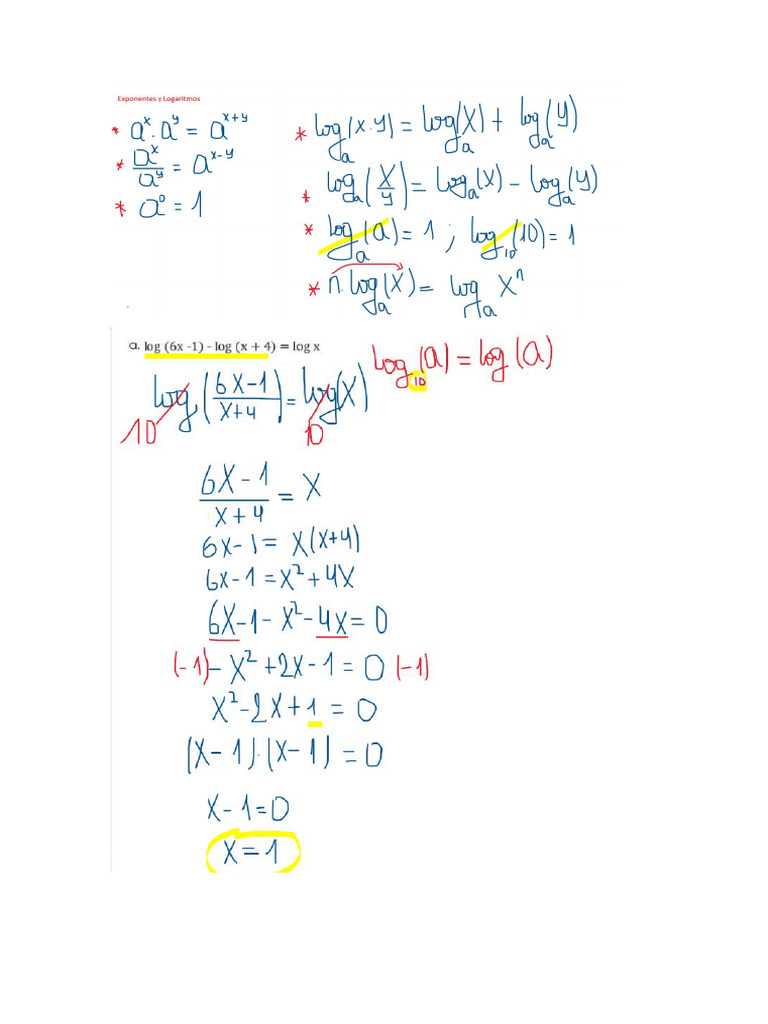 Exponentes y Logaritmos
* aˣ · aʸ = aˣ⁺ʸ
* aˣ/aʸ = aˣ⁻ʸ
* a⁰ = 1
* logₐ(x·y) = logₐ(x) + logₐ(y)
* logₐ(x/y) = logₐ(x) - logₐ(y)
* logₐ(a) = 1 ; log₁₀(10) = 1
* n·logₐ(x) = logₐ xⁿ
a. log (6x -1) - log (x + 4) = log x
log₁₀(a) = log(a)
log₁₀((6x-1)/(x+4)) = log₁₀(x)
(6x-1)/(x+4) = x
6x-1 = x(x+4)
6x-1 = x²+4x
6x-1-x²-4x = 0
(-1) -x²+2x-1 = 0 (-1)
x²-2x+1 = 0
(x-1)·(x-1) = 0
x-1=0
x=1